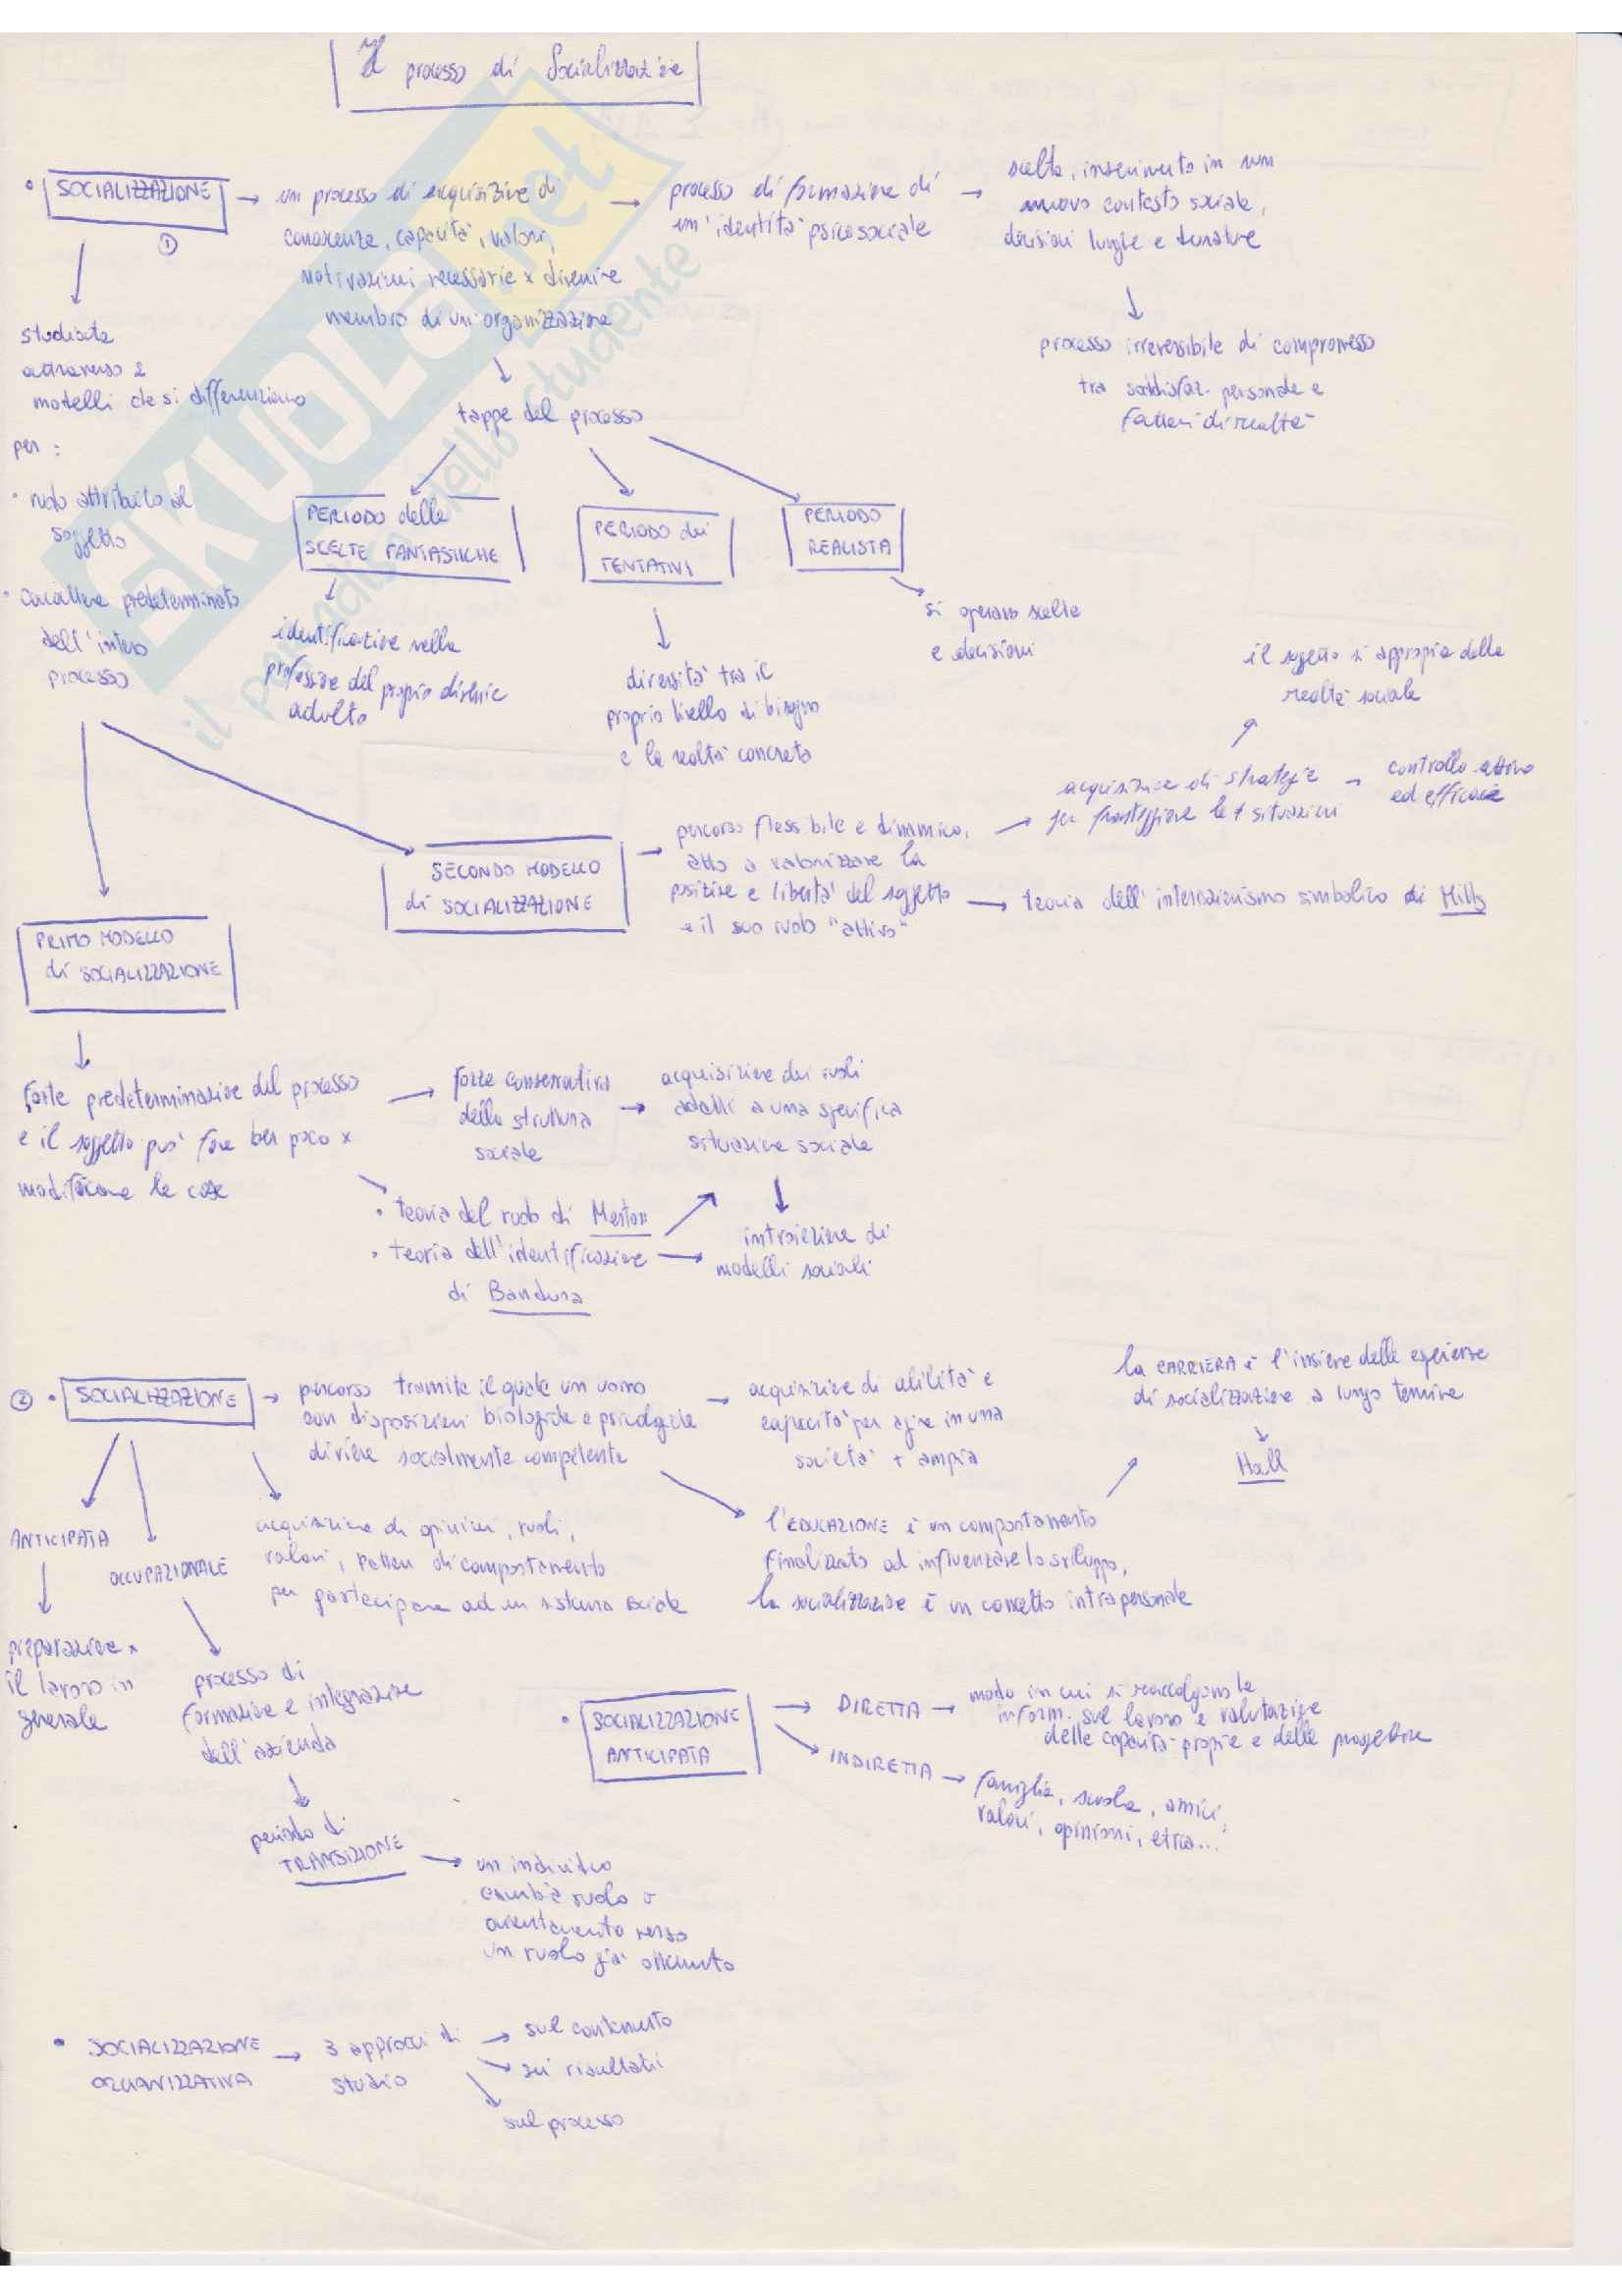 Il processo di Socializzazione
• SOCIALIZZAZIONE → un processo di acquisizione di
conoscenze, capacità, valori,
motivazioni necessarie x divenire
membro di un'organizzazione
→ processo di formazione di
un'identità psicosociale
→ scelta, inserimento in un
nuovo contesto sociale,
decisioni lunghe e durature
↓
processo irreversibile di compromesso
tra soddisfaz. personale e
fattori di realtà
①
↓
studiata
attraverso 2
modelli che si differenziano
per:
• ruolo attribuito al
soggetto
• carattere predeterminato
dell'intero
processo
↓
tappe del processo
PERIODO delle
SCELTE FANTASTICHE
↓
identificazione nella
professione del proprio
adulto
PERIODO dei
TENTATIVI
↓
diversità tra il
proprio livello di bisogno
e la realtà concreta
PERIODO
REALISTA
si operano scelte
e decisioni
SECONDO MODELLO
di SOCIALIZZAZIONE
→ percorso flessibile e dinamico,
atto a valorizzare la
posizione e libertà del soggetto
e il suo ruolo "attivo"
→ acquisizione di strategie
per fronteggiare le ≠ situazioni
→ controllo attivo
ed efficace
il soggetto si appropria della
realtà sociale
→ teoria dell'interazionismo simbolico di Mills
PRIMO MODELLO
di SOCIALIZZAZIONE
↓
forte predeterminazione del processo
e il soggetto può fare ben poco x
modificare le cose
→ forze conservatrici
della struttura
sociale
→ acquisizione dei ruoli
adatti a una specifica
situazione sociale
↓
introiezione di
modelli sociali
• teoria del ruolo di Merton
• teoria dell'identificazione
di Bandura
② • SOCIALIZZAZIONE → percorso tramite il quale un uomo
con disposizioni biologiche e psicologiche
diviene socialmente competente
→ acquisizione di abilità e
capacità per agire in una
società + ampia
la CARRIERA è l'insieme delle esperienze
di socializzazione a lungo termine
↓
Hall
l'EDUCAZIONE è un comportamento
finalizzato ad influenzare lo sviluppo,
la socializzazione è un concetto intrapersonale
acquisizione di opinioni, ruoli,
valori, pattern di comportamento
per partecipare ad un sistema sociale
ANTICIPATA
↓
preparazione x
il lavoro in
generale
OCCUPAZIONALE
processo di
formazione e integrazione
dell'azienda
↓
periodo di
TRANSIZIONE
→ un individuo
cambia ruolo o
orientamento verso
un ruolo già ottenuto
• SOCIALIZZAZIONE
ANTICIPATA
→ DIRETTA → modo in cui si raccolgono le
inform. sul lavoro e valutazione
delle capacità proprie e delle prospettive
INDIRETTA → famiglia, scuola, amici,
valori, opinioni, etica...
• SOCIALIZZAZIONE
ORGANIZZATIVA
→ 3 approcci di
studio
→ sul contenuto
→ sui risultati
sul processo
SKUOLA.net
il paradiso dello studente